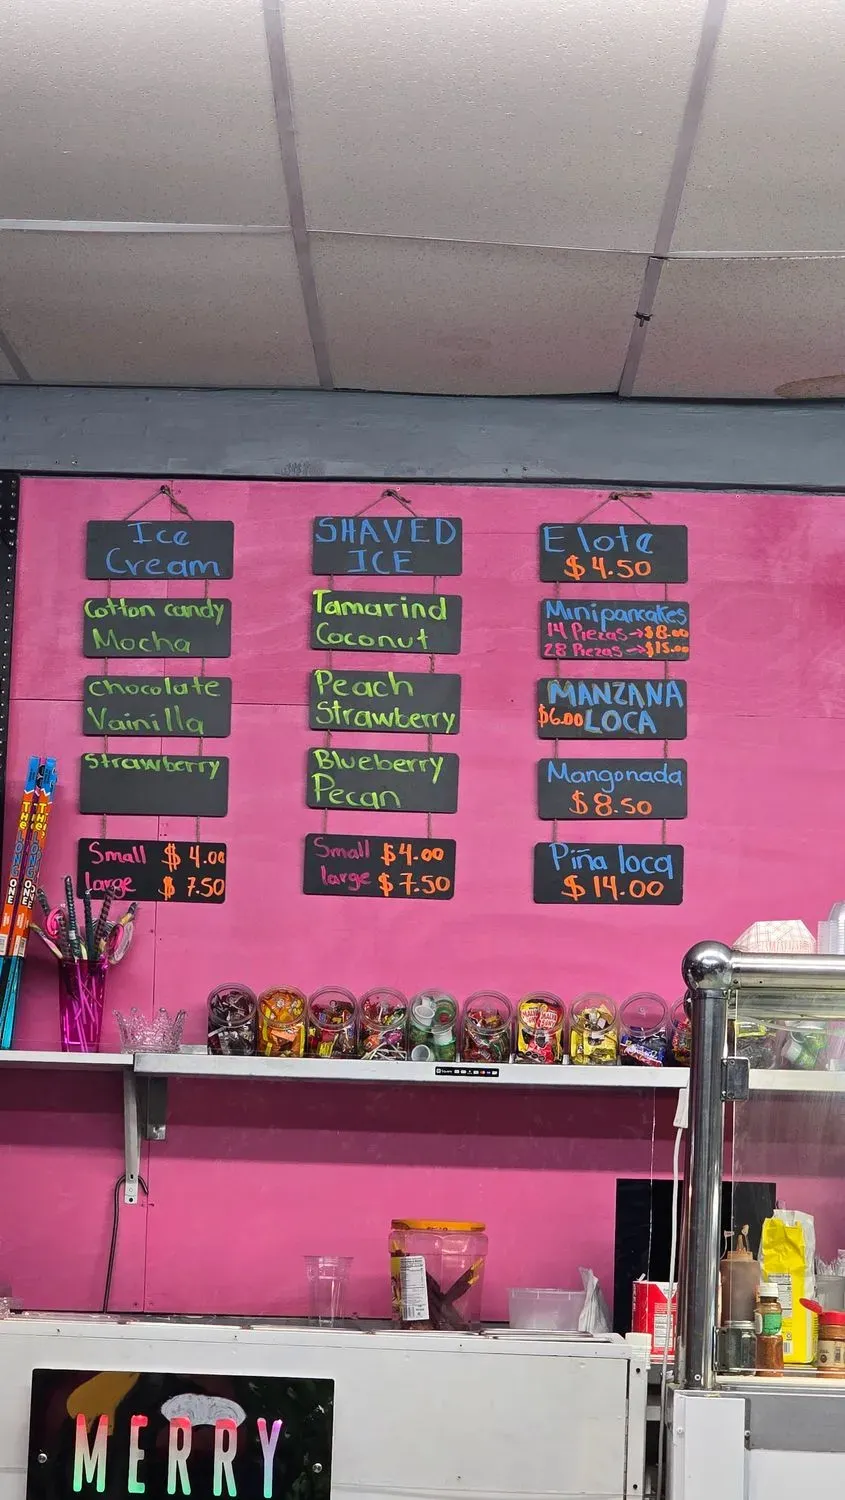 Ice
Cream
Cotton candy
Mocha
chocolate
Vainilla
strawberry
Small $4.00
large $7.50
SHAVED
ICE
Tamarind
Coconut
Peach
Strawberry
Blueberry
Pecan
Small $4.00
large $7.50
Elote
$4.50
Minipancakes
14 Piezas → $8.00
28 Piezas → $15.00
MANZANA
$6.00 LOCA
Mangonada
$8.50
Piña loca
$14.00
THE LONG ONE
THE LONG ONE
MERRY